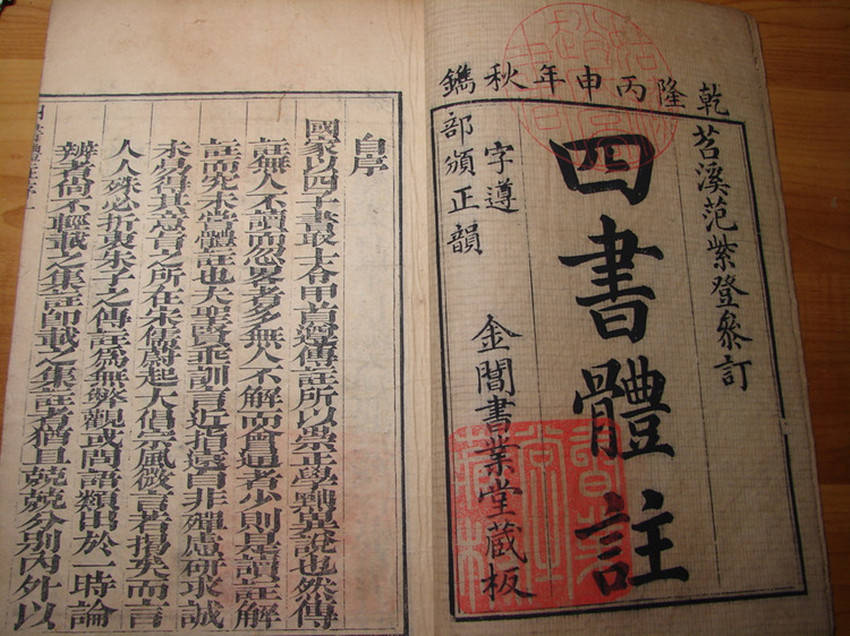 乾隆丙申年秋鐫
苕溪范紫登叅訂
四書體註
字遵
部頒正韻
金閶書業堂藏板
自序
國家以四子書取士命甲首遵傳註所以崇正學黜異說也然傳
註無人不讀而忽畧者多無人不解而會通者少則是讀註解
註而究未嘗體註也夫聖賢垂訓言近指遠自非殫慮研求誠
未易得其意旨之所在宋儒蔚起大倡宗風微言若揭矣而言
人人殊必折衷朱子之傳註爲無弊觀或問語類出於一時論
辨者尚不輕載之集註卽載之集註者猶且兢兢分別內外以